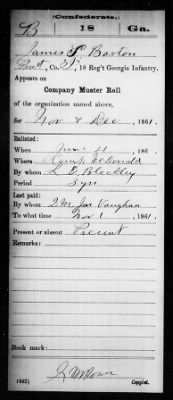 Confederate.
B 18 Ga.
James P Barton
Co. B, 18 Reg't Georgia Infantry.
Appears on
Company Muster Roll
of the organization named above,
for Nov & Dec, 1861.
Enlisted:
When 186 .
Where Camp McDonald
By whom L. E. Bleckley
Period 3 yrs
Last paid:
By whom Jas Vaughan
To what time Nov 1, 1861.
Present or absent Present
Remarks:
Book mark:
(642)
Copyist.